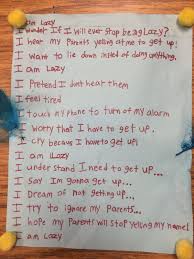 I am Lazy
I wonder If I will ever stop being Lazy?
I hear my Parents yelling at me to get up!
I want to lie down insted of doing anything.
I am Lazy
I Pretend I dont hear them
I feel tired
I touch my Phone to turn of my alarm
I Worry that I have to get up.
I cry because I have to get up!
I am Lazy
I understand I need to get up...
I Say I'm gonna get up...
I Dream of not getting up...
I try to ignore my Parents...
I hope my Parents will stop yelling my name!
I am Lazy